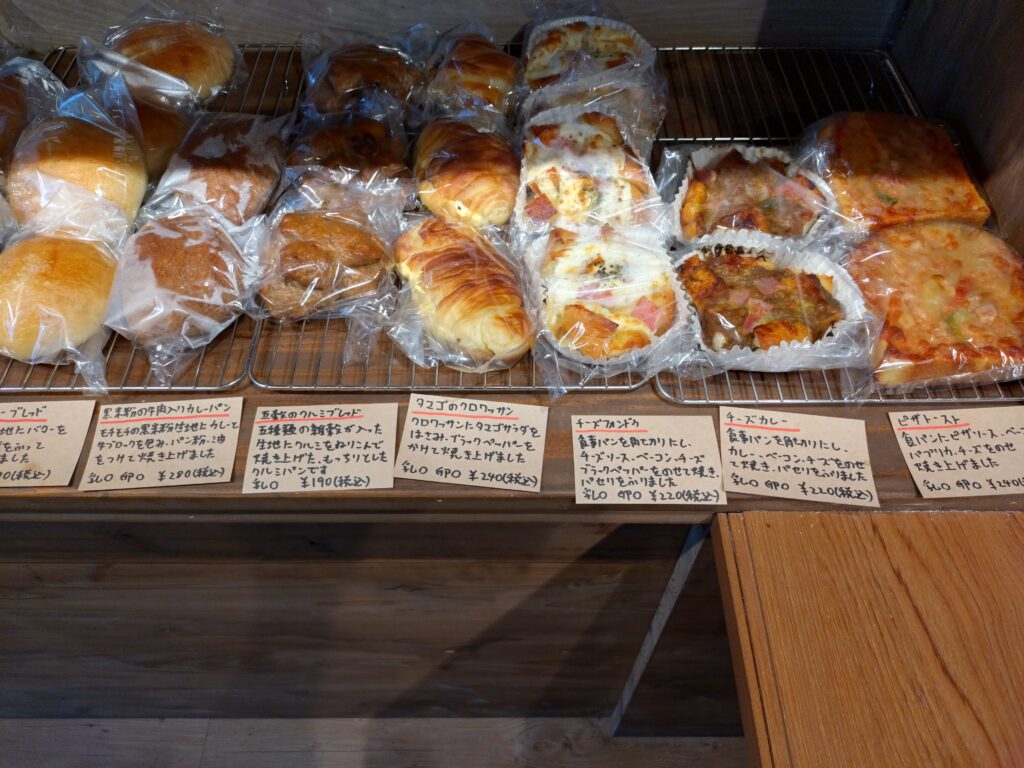 ーブレッド
生地にバターを
をふって
ました
90(税込)
黒米粉の牛肉入りカレーパン
モチモチの黒米粉生地にカレーと
牛ブロックを包み、パン粉・油
をつけて焼き上げました
乳○ 卵○ ¥280(税込)
五穀のクルミブレッド
五種類の雑穀が入った
生地にクルミをねりこんで
焼き上げた、もっちりとした
クルミパンです
乳○ ¥190(税込)
タマゴのクロワッサン
クロワッサンにタマゴサラダを
はさみ、ブラックペーパーを
かけて焼き上げました
乳○ 卵○ ¥240(税込)
チーズフォンデュ
食事パンを角切りにし、
チーズソース、ベーコン、チーズ
ブラックペッパーをのせて焼き
パセリをふりました
乳○ 卵○ ¥220(税込)
チーズカレー
食事パンを角切りにし、
カレー、ベーコン、チーズをのせ
て焼き、パセリをふりました
乳○ 卵○ ¥220(税込)
ピザトースト
食パンに、ピザソース、ベーコ
パプリカ、チーズをのせ
焼き上げました
乳○ 卵○ ¥240(税